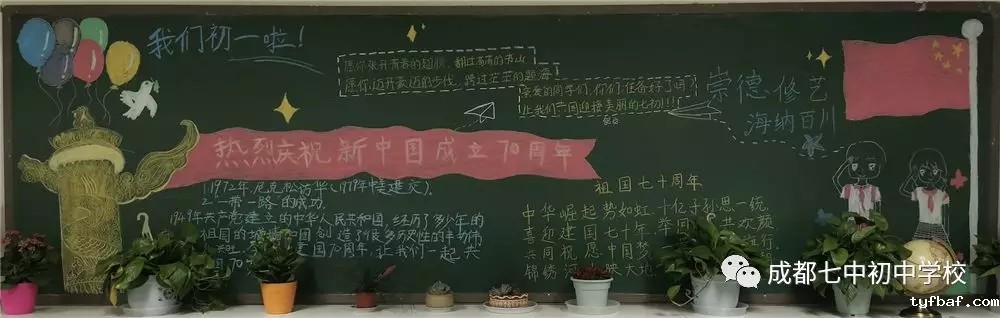 我们初一啦!
愿你张开青春的翅膀,翻过高高的书山
愿你迈开豪迈的步伐,跨过茫茫的题海
亲爱的同学们,你们准备好了吗
让我们一同迎接美丽的七初!!!
崇德 修艺
海纳百川
热烈庆祝新中国成立70周年
1.1972年,尼克松访华(1979年中美建交).
2.一带一路的成功.
1949年共产党建立的中华人民共和国,经历了多少年的
祖国的 国创造了很多历史性的
国70周年,让我们一起共
70
祖国七十周年
中华崛起势如虹,十亿子孙思一统
喜迎建国七十年,举国 共欢颜
共同祝愿中国梦
锦绣河 映大地
成都七中初中学校
tyfbaf.com